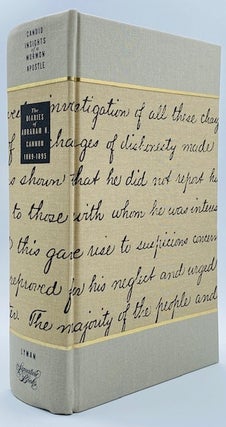 CANDID
INSIGHTS
of a
MORMON
APOSTLE
The
DIARIES
of
ABRAHAM H.
CANNON
1889-1895
LYMAN
Signature
Books
investigation of all these charg
of charges of dishonesty made
s shown that he did not report his
to those with whom he was interes
this gave rise to suspicions concern
reproved for his neglect and urged
The majority of the people and